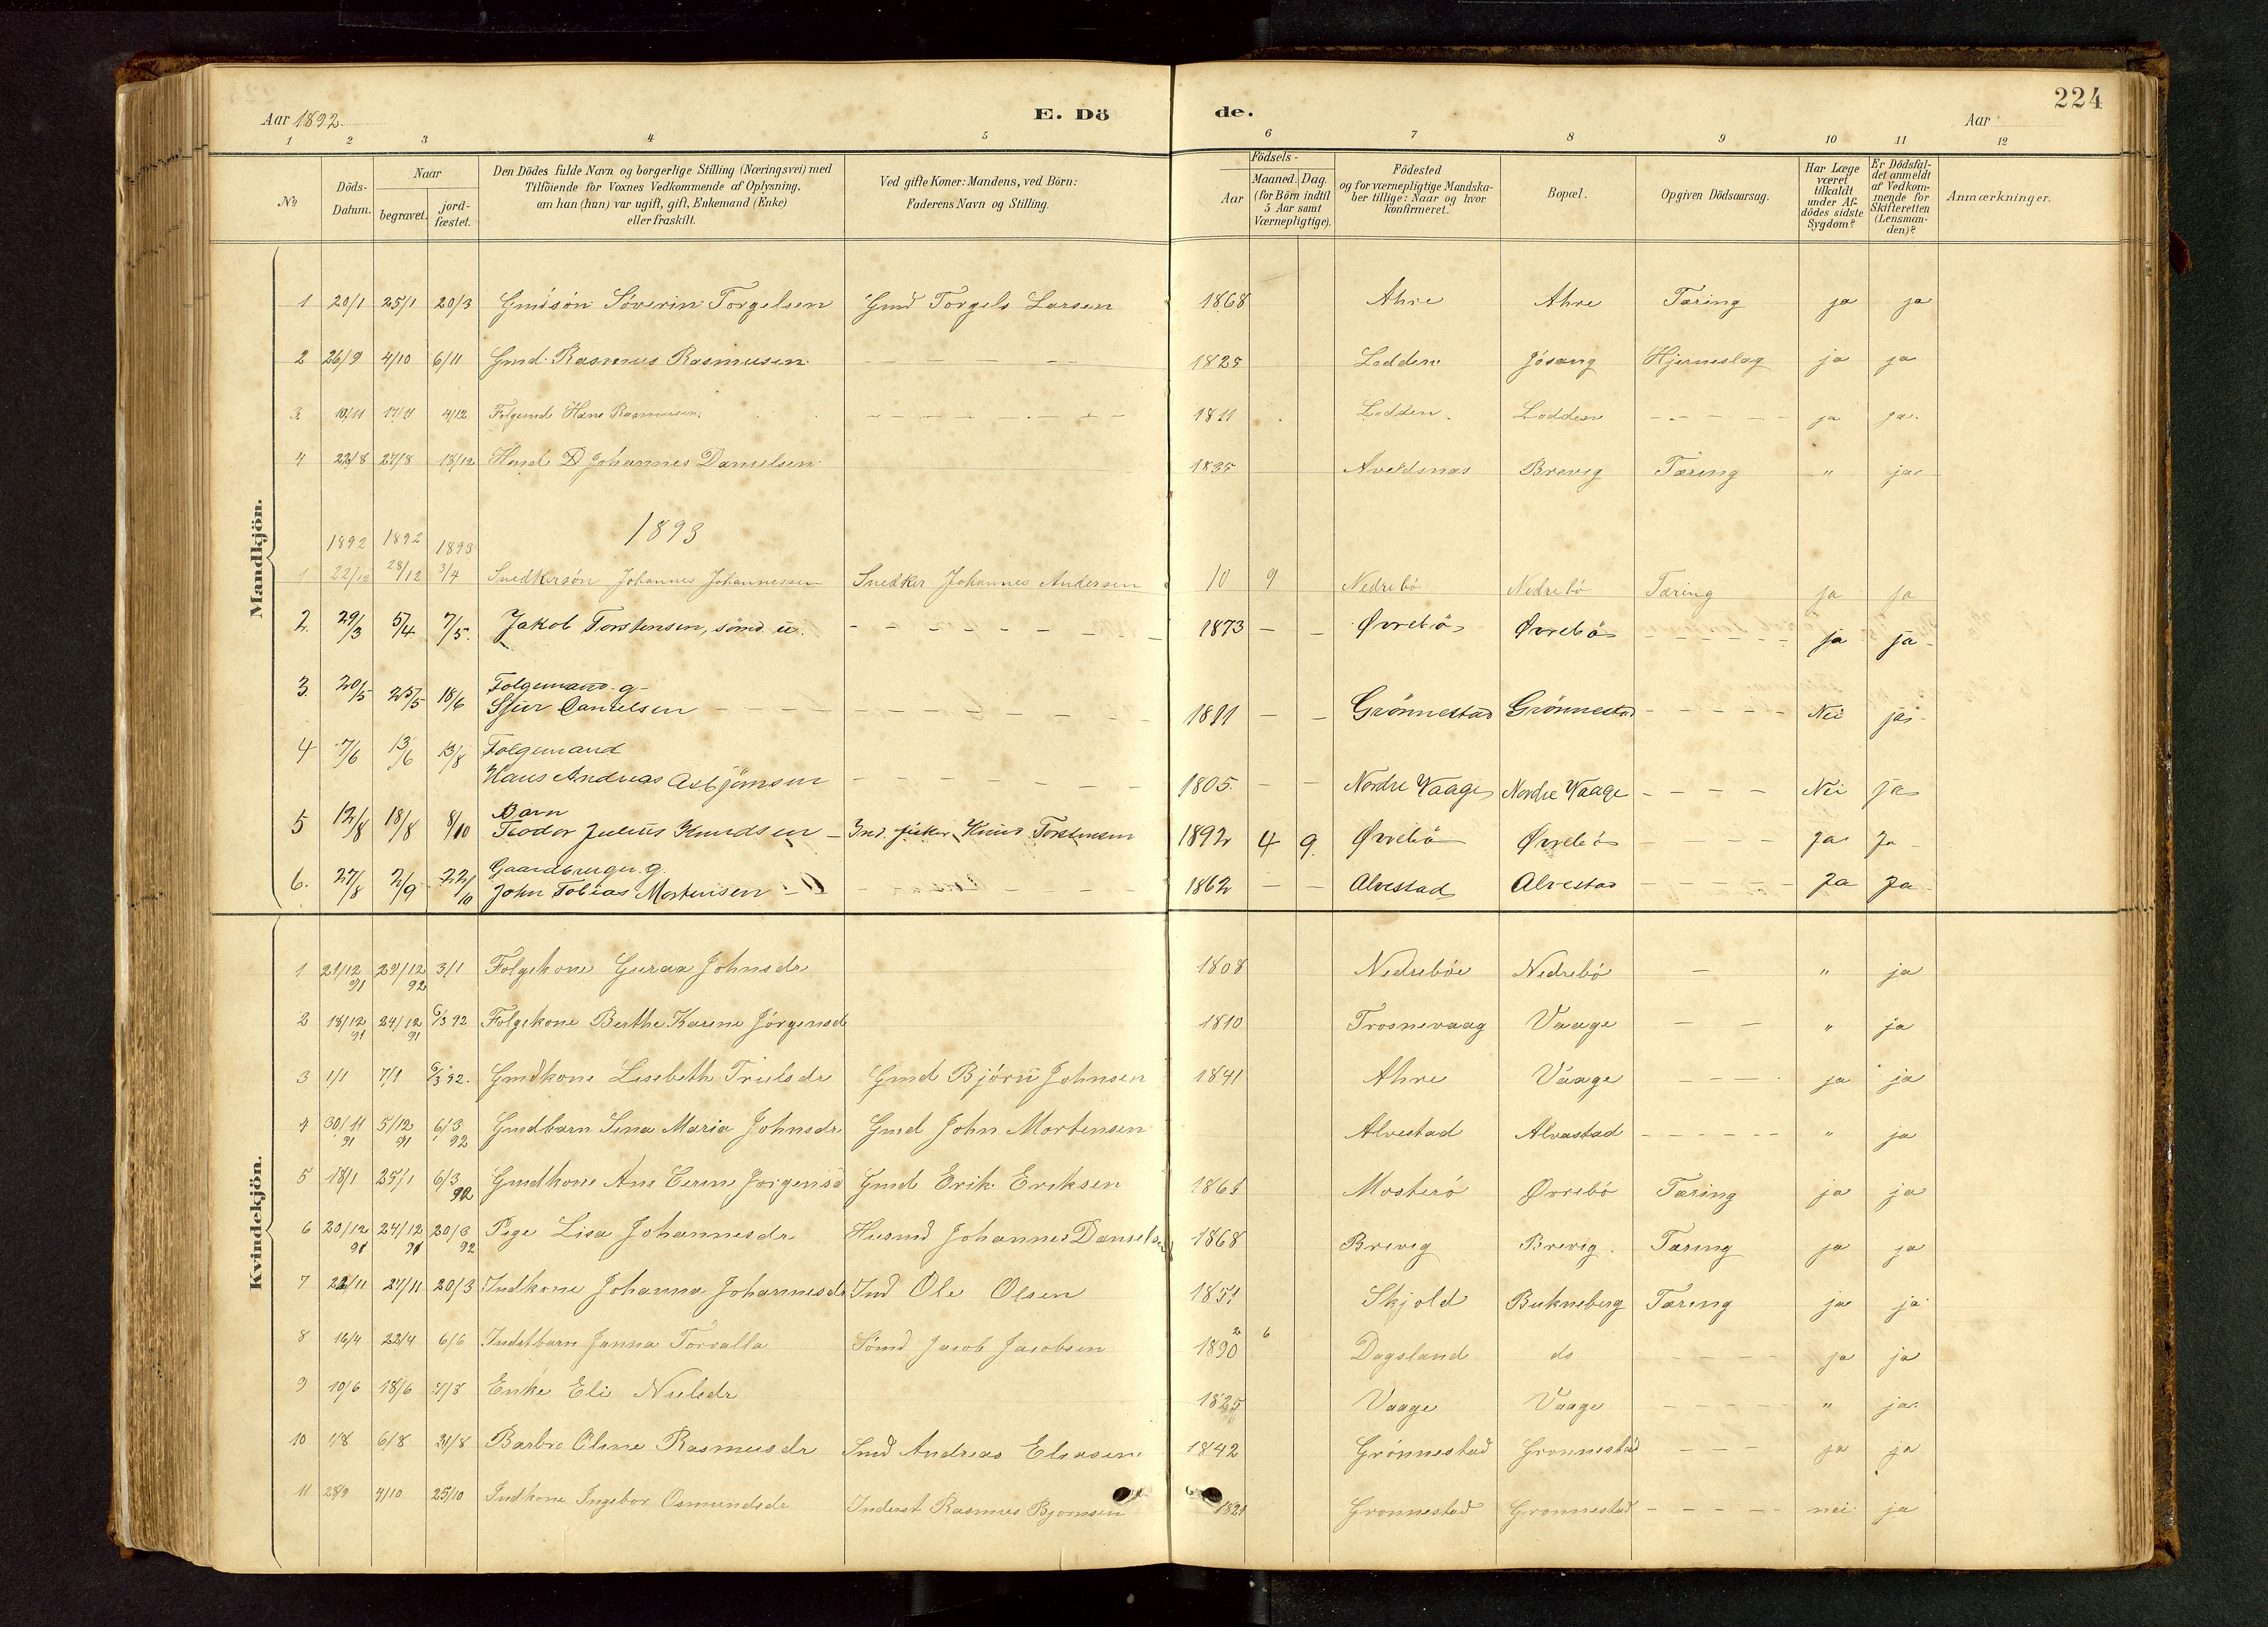 224
Aar 1892.
E. Dö
de.
Aar
1 2 3 4 5 6 7 8 9 10 11 12
No
Döds-Datum.
Naar
begravet.
jord-fæstet.
Den Dödes fulde Navn og borgerlige Stilling (Næringsvei) med
Tilföiende for Voxnes Vedkommende af Oplysning,
om han (hun) var ugift, gift, Enkemand (Enke)
eller fraskilt.
Ved gifte Koner: Mandens, ved Börn:
Faderens Navn og Stilling.
Födsels-
Aar
Maaned. Dag.
(for Börn indtil
5 Aar samt
Værnepligtige).
Födested
og for værnepligtige Mandska-
ber tillige: Naar og hvor
konfirmeret.
Bopæl.
Opgiven Dödsaarsag.
Har Læge
været
tilkaldt
under Af-
dödes sidste
Sygdom?
Er Dödsfal-
det anmeldt
af Vedkom-
mende for
Skifteretten
(Lensman-
den)?
Anmærkninger.
Mandkjön.
1 20/1 25/1 20/3 Gmdsön Söverin Torgelsen Gmd Torgels Larsen 1868 Ahre Ahre Tæring ja ja
2 26/9 4/10 6/11 Gmd. Rasmus Rasmusen 1825 Lodden Jösang Hjerneslag ja ja
3 10/11 17/11 4/12 Folgemd Hans Rasmusen 1811 Lodden Lodden ja ja
4 22/8 27/8 18/12 Husmd Johannes Danielsen 1835 Avaldsnæs Brevig Tæring " ja
1893
1892 1892 1893
1 22/12 28/12 3/4 Snedkersön Johannes Johannessen Snedker Johannes Andersen 10 9 Nedrebö Nedrebö Tæring ja ja
2. 29/3 5/4 7/5. Jakob Torstensen, sömd. u. 1873 Øvrebö Øvrebö ja ja
3. 20/5 25/5 18/6 Folgemand g.
Sjur Danielsen 1811 Grönnestad Grönnestad Nei ja
4 7/6 13/6 13/8 Folgemand
Hans Andreas Asbjörnsen 1805. Nordre Vaage Nordre Vaage Nei ja
5 12/8 18/8 8/10 Barn
Teodor Julius Knudsen Ind. fisker Knud Torstensen 1892 4 9. Øvrebö Øvrebö Ja Ja
6. 27/8 2/9 22/10 Gaardbruger g.
John Tobias Mortensen 1862 Alvestad Alvestad Ja Ja
Kvindekjön.
1 21/12 91 29/12 92 3/1 Folgekone Guraa Johnsdr 1808 Nedreböe Nedrebö " ja
2 18/12 91 24/12 91 6/3 92 Folgekone Berthe Karine Jörgensd 1810 Trosnevaag Vaage " ja
3 1/1 7/1 6/3 92. Gmdkone Lisebeth Trulsdr Gmd Björn Johnsen 1841 Ahre Vaage ja ja
4 30/11 91 5/12 91 6/3 92 Gmdbarn Sina Maria Johnsdr Gmd John Mortensen Alvestad Alvastad " ja
5 18/1 25/1 6/3 92 Gmdkone Ane Jorgensd Gmd Erik Eriksen 1861 Mosterö Øvrebö Tæring ja ja
6 20/12 91 24/12 91 20/3 92 Pige Lisa Johannesdr Husmd Johannes Danielsen 1868 Brevig Brevig. Tæring ja ja
7 22/11 27/11 20/3 Indkone Johanna Johannesdr Ind Ole Olsen 1851 Skjold Bukneberg Tæring ja ja
8 16/4 22/4 6/6 Indstbarn Janna Torvalla Sömd Jacob Jacobsen 1890 2 6 Dagsland do ja ja
9 10/6 18/6 7/8 Enke Eli Nielsdr 1825 Vaage Vaage " ja
10 1/8 6/8 21/8 Barbro Oline Rasmusdr Smd Andreas Eliasen 1842 Grönnestad Gronnestad ja ja
11 28/9 4/10 25/10 Indkone Ingebor Osmundsdr Inderst Rasmus Bjornsen 1821 Gronnestad Gronnestad nei ja